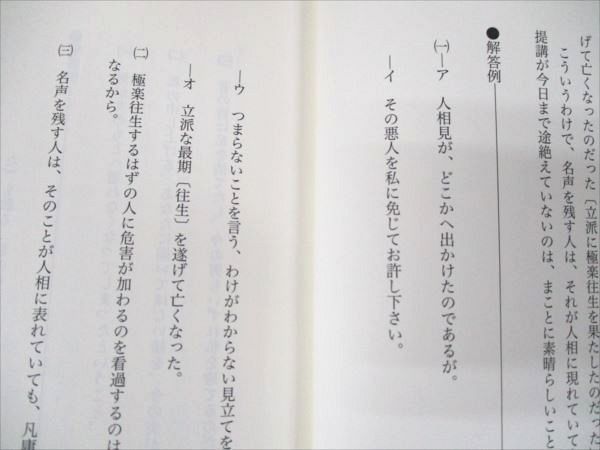 げて亡くなったのだった〔立派に極楽往生を果たしたのだった
こういうわけで、名声を残す人は、それが人相に現れていて
提講が今日まで途絶えていないのは、まことに素晴らしいこと
●解答例
㈠―ア 人相見が、どこかへ出かけたのであるが。
―イ その悪人を私に免じてお許し下さい。
―ウ つまらないことを言う、わけがわからない見立てを
―オ 立派な最期〔往生〕を遂げて亡くなった。
㈡ 極楽往生するはずの人に危害が加わるのを看過するのは
なるから。
㈢ 名声を残す人は、そのことが人相に表れていても、凡庸